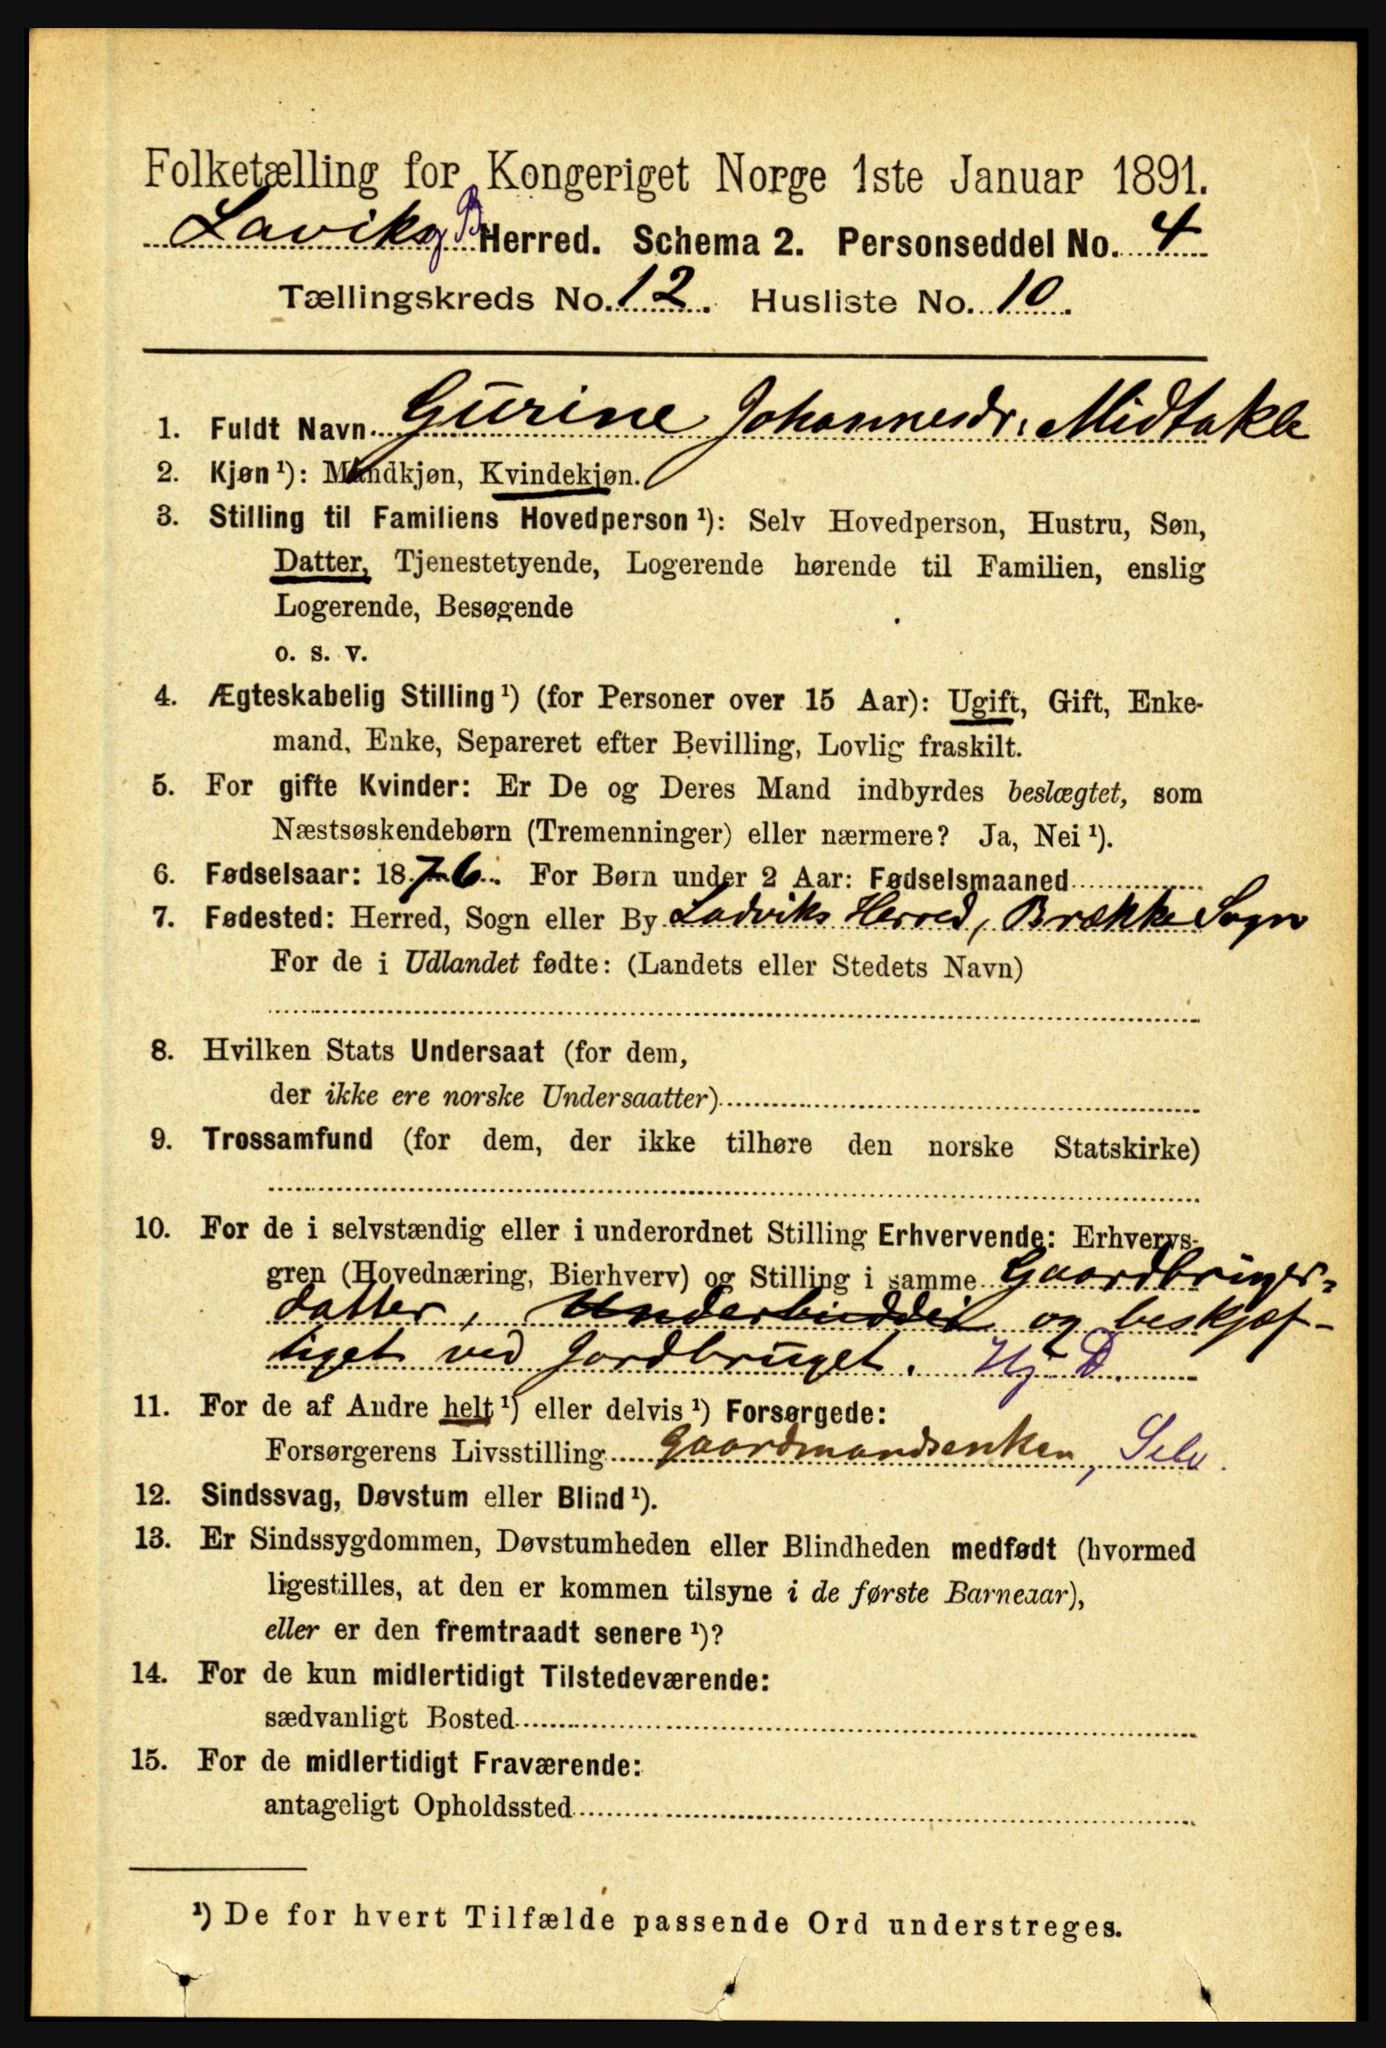 Folketælling for Kongeriget Norge 1ste Januar 1891.
Lavik og B Herred. Schema 2. Personseddel No. 4
Tællingskreds No. 12. Husliste No. 10.
1. Fuldt Navn Gurine Johannesdr. Midtakle
2. Kjøn ¹): Mandkjøn, Kvindekjøn.
3. Stilling til Familiens Hovedperson ¹): Selv Hovedperson, Hustru, Søn,
Datter, Tjenestetyende, Logerende hørende til Familien, enslig
Logerende, Besøgende
o. s. v.
4. Ægteskabelig Stilling ¹) (for Personer over 15 Aar): Ugift, Gift, Enke-
mand, Enke, Separeret efter Bevilling, Lovlig fraskilt.
5. For gifte Kvinder: Er De og Deres Mand indbyrdes beslægtet, som
Næstsøskendebørn (Tremenninger) eller nærmere? Ja, Nei ¹).
6. Fødselsaar: 1876. For Børn under 2 Aar: Fødselsmaaned
7. Fødested: Herred, Sogn eller By Ladviks Herred, Brække Sogn
For de i Udlandet fødte: (Landets eller Stedets Navn)
8. Hvilken Stats Undersaat (for dem,
der ikke ere norske Undersaatter)
9. Trossamfund (for dem, der ikke tilhøre den norske Statskirke)
10. For de i selvstændig eller i underordnet Stilling Erhvervende: Erhvervs-
gren (Hovednæring, Bierhverv) og Stilling i samme Gaardbruger-
datter, og beskjæf-
tiget ved Jordbruget. Hj. D.
11. For de af Andre helt ¹) eller delvis ¹) Forsørgede:
Forsørgerens Livsstilling Gaardmandsenken, Selv.
12. Sindssvag, Døvstum eller Blind ¹).
13. Er Sindssygdommen, Døvstumheden eller Blindheden medfødt (hvormed
ligestilles, at den er kommen tilsyne i de første Barneaar),
eller er den fremtraadt senere ¹)?
14. For de kun midlertidigt Tilstedeværende:
sædvanligt Bosted
15. For de midlertidigt Fraværende:
antageligt Opholdssted
¹) De for hvert Tilfælde passende Ord understreges.